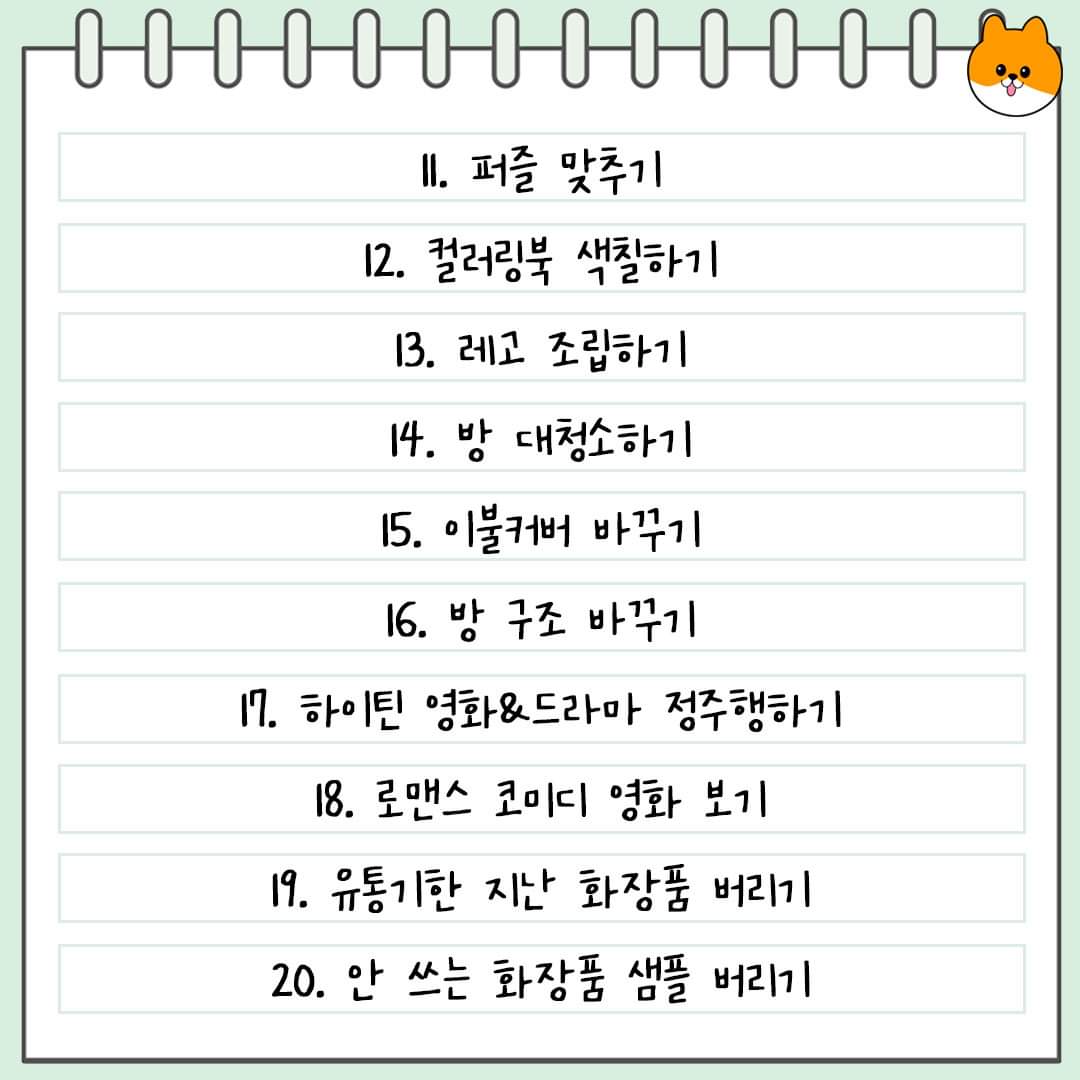 11. 퍼즐 맞추기
12. 컬러링북 색칠하기
13. 레고 조립하기
14. 방 대청소하기
15. 이불커버 바꾸기
16. 방 구조 바꾸기
17. 하이틴 영화&드라마 정주행하기
18. 로맨스 코미디 영화 보기
19. 유통기한 지난 화장품 버리기
20. 안 쓰는 화장품 샘플 버리기